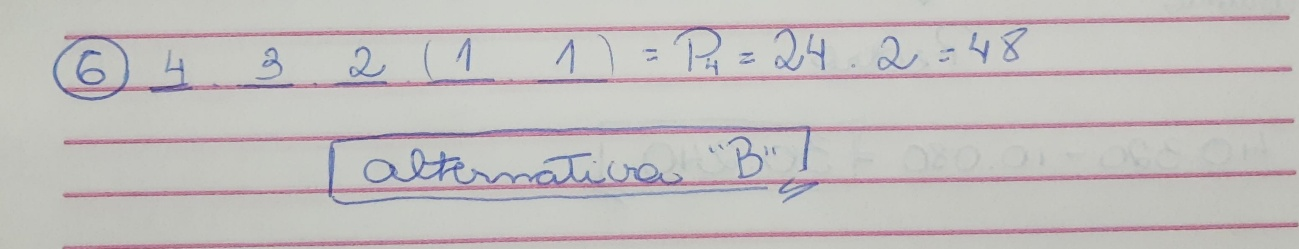 6 4 . 3 . 2 (1 . 1) = P4 = 24 . 2 = 48
alternativa "B"